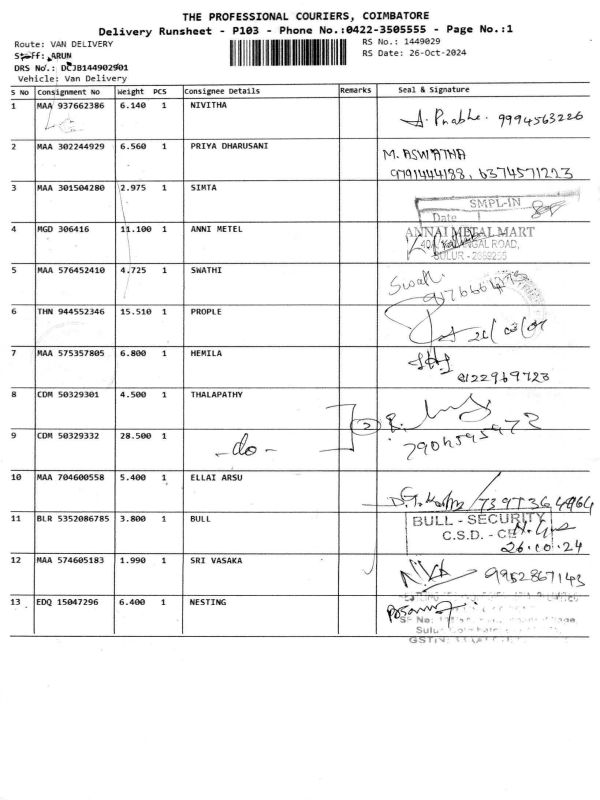 THE PROFESSIONAL COURIERS, COIMBATORE
Delivery Runsheet - P103 - Phone No.:0422-3505555 - Page No.:1
Route: VAN DELIVERY
RS No.: 1449029
Staff: ARUN
RS Date: 26-Oct-2024
DRS No.: DCJB144902901
Vehicle: Van Delivery
S No Consignment No Weight PCS Consignee Details Remarks Seal & Signature
1 MAA 937662386 6.140 1 NIVITHA A. Prabhe. 9994563226
2 MAA 302244929 6.560 1 PRIYA DHARUSANI M. ASWATHA
9791444188, 6374571223
3 MAA 301504280 2.975 1 SIMTA SMPL-IN
Date
4 MGD 306416 11.100 1 ANNI METEL ANNAI METAL MART
ROAD,
SULUR
5 MAA 576452410 4.725 1 SWATHI Swathi
6 THN 944552346 15.510 1 PROPLE
7 MAA 575357805 6.800 1 HEMILA
8122969723
8 CDM 50329301 4.500 1 THALAPATHY 2
9 CDM 50329332 28.500 1 -do-
10 MAA 704600558 5.400 1 ELLAI ARSU
11 BLR 5352086785 3.800 1 BULL BULL - SECURITY
C.S.D. -
26.10.24
12 MAA 574605183 1.990 1 SRI VASAKA 9952867143
13 EDQ 15047296 6.400 1 NESTING
SF No:
Sulur
GSTIN: